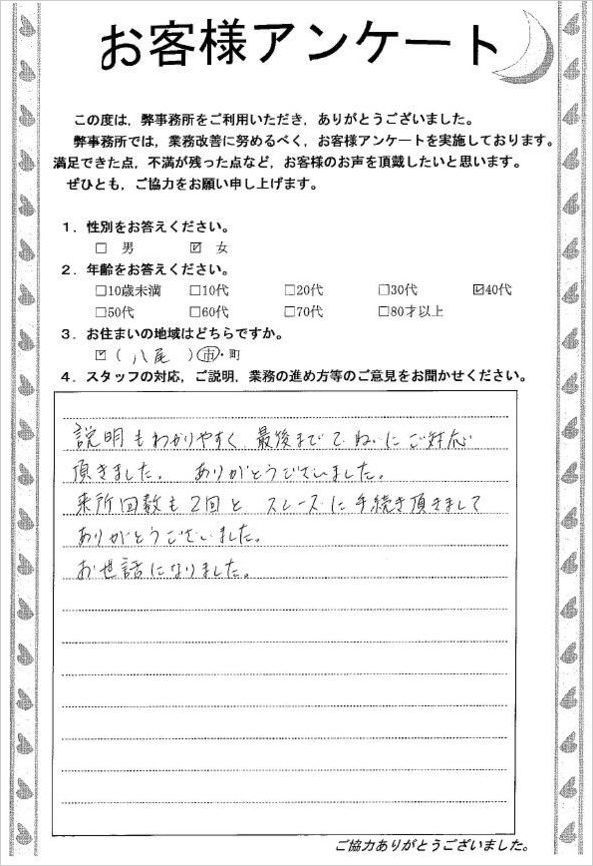 お客様アンケート
この度は，弊事務所をご利用いただき，ありがとうございました。
弊事務所では，業務改善に努めるべく，お客様アンケートを実施しております。
満足できた点，不満が残った点など，お客様のお声を頂戴したいと思います。
ぜひとも，ご協力をお願い申し上げます。
1．性別をお答えください。
□ 男 ☑ 女
2．年齢をお答えください。
□10歳未満 □10代 □20代 □30代 ☑40代
□50代 □60代 □70代 □80才以上
3．お住まいの地域はどちらですか。
☑（ 八尾 ）市・町
4．スタッフの対応，ご説明，業務の進め方等のご意見をお聞かせください。
説明もわかりやすく 最後までていねいにご対応
頂きました。 ありがとうございました。
来所回数も2回と スムーズに手続き頂きまして
ありがとうございました。
お世話になりました。
ご協力ありがとうございました。